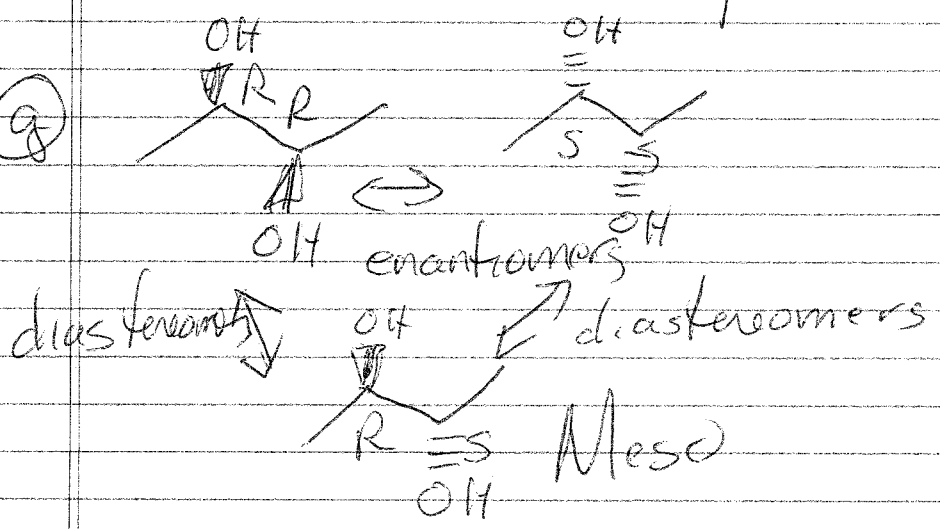 OH OH
g R R
S S
OH OH
enantiomers
diastereomers diastereomers
OH
R S Meso
OH